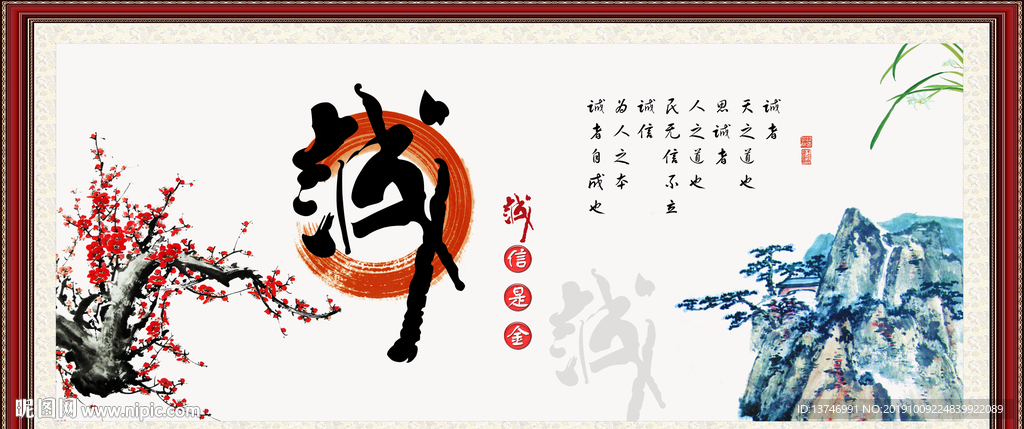 诚
诚信是金
诚者
天之道也
思诚者
人之道也
民无信不立
诚信
为人之本
诚者自成也
诚
昵图网 www.nipic.com
ID:13746991 NO:20191009224839922089